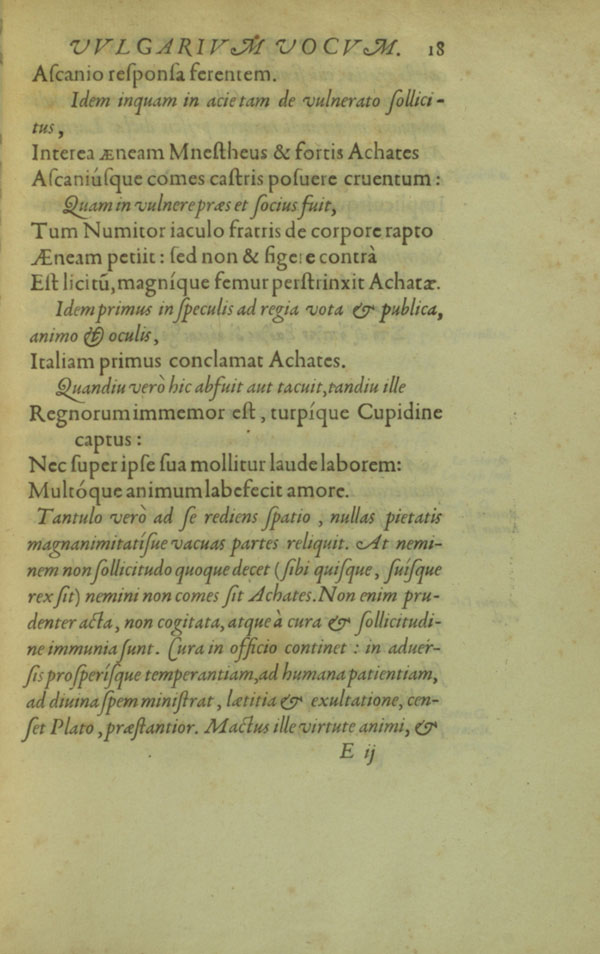 VVLGARIVM VOCVM. 18
Aſcanio reſponſa ferentem.
Idem inquam in acie tam de vulnerato ſollici-
tus,
Interea Æneam Mneſtheus & fortis Achates
Aſcaniúſque comes caſtris poſuere cruentum:
Quam in vulnere præs et ſocius fuit,
Tum Numitor iaculo fratris de corpore rapto
Æneam petiit: ſed non & figere contrà
Eſt licitū, magníque femur perſtrinxit Achatæ.
Idem primus in ſpeculis ad regia vota & publica,
animo & oculis,
Italiam primus conclamat Achates.
Quandiu verò hic abfuit aut tacuit, tandiu ille
Regnorum immemor eſt, turpíque Cupidine
captus:
Nec ſuper ipſe ſua mollitur laude laborem:
Multóque animum labefecit amore.
Tantulo verò ad ſe rediens ſpatio, nullas pietatis
magnanimitatíſue vacuas partes reliquit. At nemi-
nem non ſollicitudo quoque decet (ſibi quiſque, ſuíſque
rex ſit) nemini non comes ſit Achates. Non enim pru-
denter acta, non cogitata, atque à cura & ſollicitudi-
ne immunia ſunt. Cura in officio continet: in aduer-
ſis proſperíſque temperantiam, ad humana patientiam,
ad diuina ſpem miniſtrat, lætitia & exultatione, cen-
ſet Plato, præſtantior. Mactus ille virtute animi, &
E ij